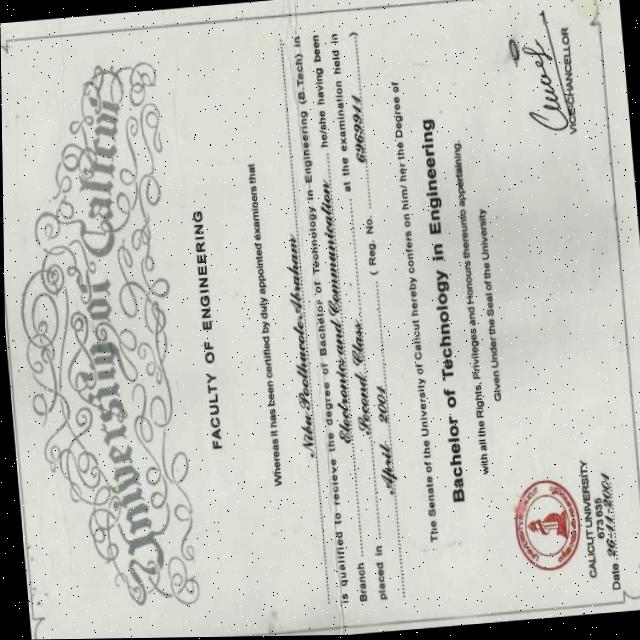 University of Calicut
FACULTY OF ENGINEERING
Whereas it has been certified by duly appointed examiners that
Abraham
is qualified to recieve the degree of Bachelor of Technology in Engineering (B.Tech) in
Branch Electronics and Communication he/she having been
placed in Second Class at the examination held in
April 2001 ( Reg. No. )
The Senate of the University of Calicut hereby confers on him/ her the Degree of
Bachelor of Technology in Engineering
with all the Rights, Privileges and Honours thereunto appertaining.
Given Under the Seal of the University
CALICUT UNIVERSITY
673 635
Date
VICE-CHANCELLOR